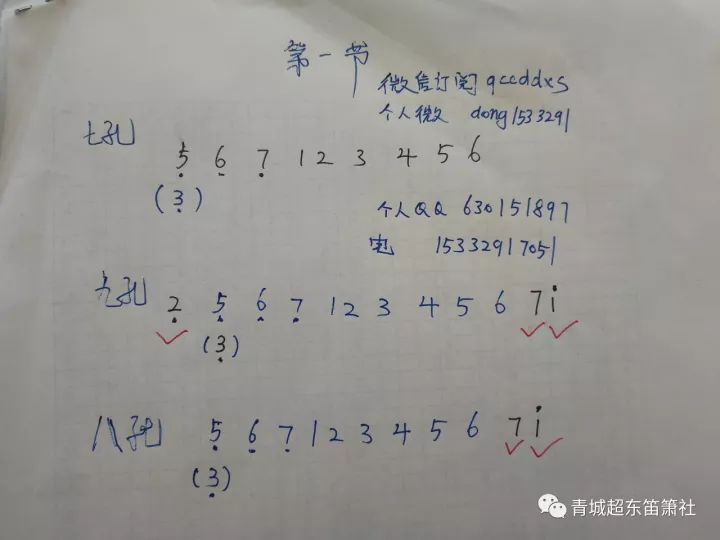 第一节
微信订阅 qccddxs
个人微 dong1533291
七孔 5̣ 6̣ 7̣ 1 2 3 4 5 6
(3̣)
个人QQ 630151897
电 15332917051
九孔 2̣ 5̣ 6̣ 7̣ 1 2 3 4 5 6 7 i
(3̣)
八孔 5̣ 6̣ 7̣ 1 2 3 4 5 6 7 i
(3̣)
青城超东笛箫社